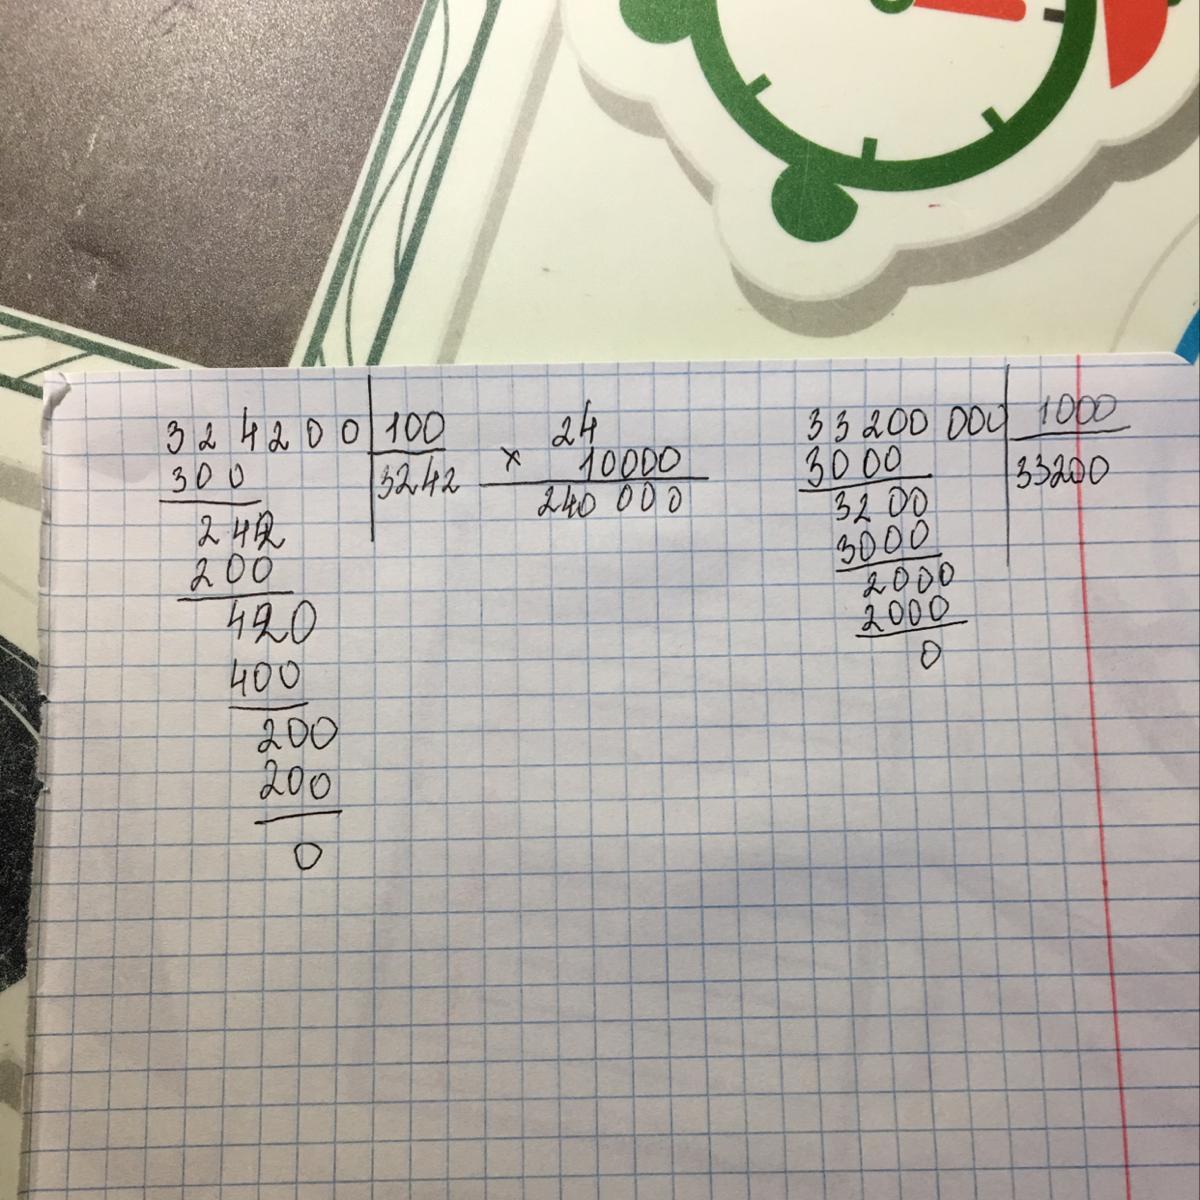 324200 100
300 3242
242
200
420
400
200
200
0
24
× 10000
240 000
33200 000 1000
3000 33200
3200
3000
2000
2000
0